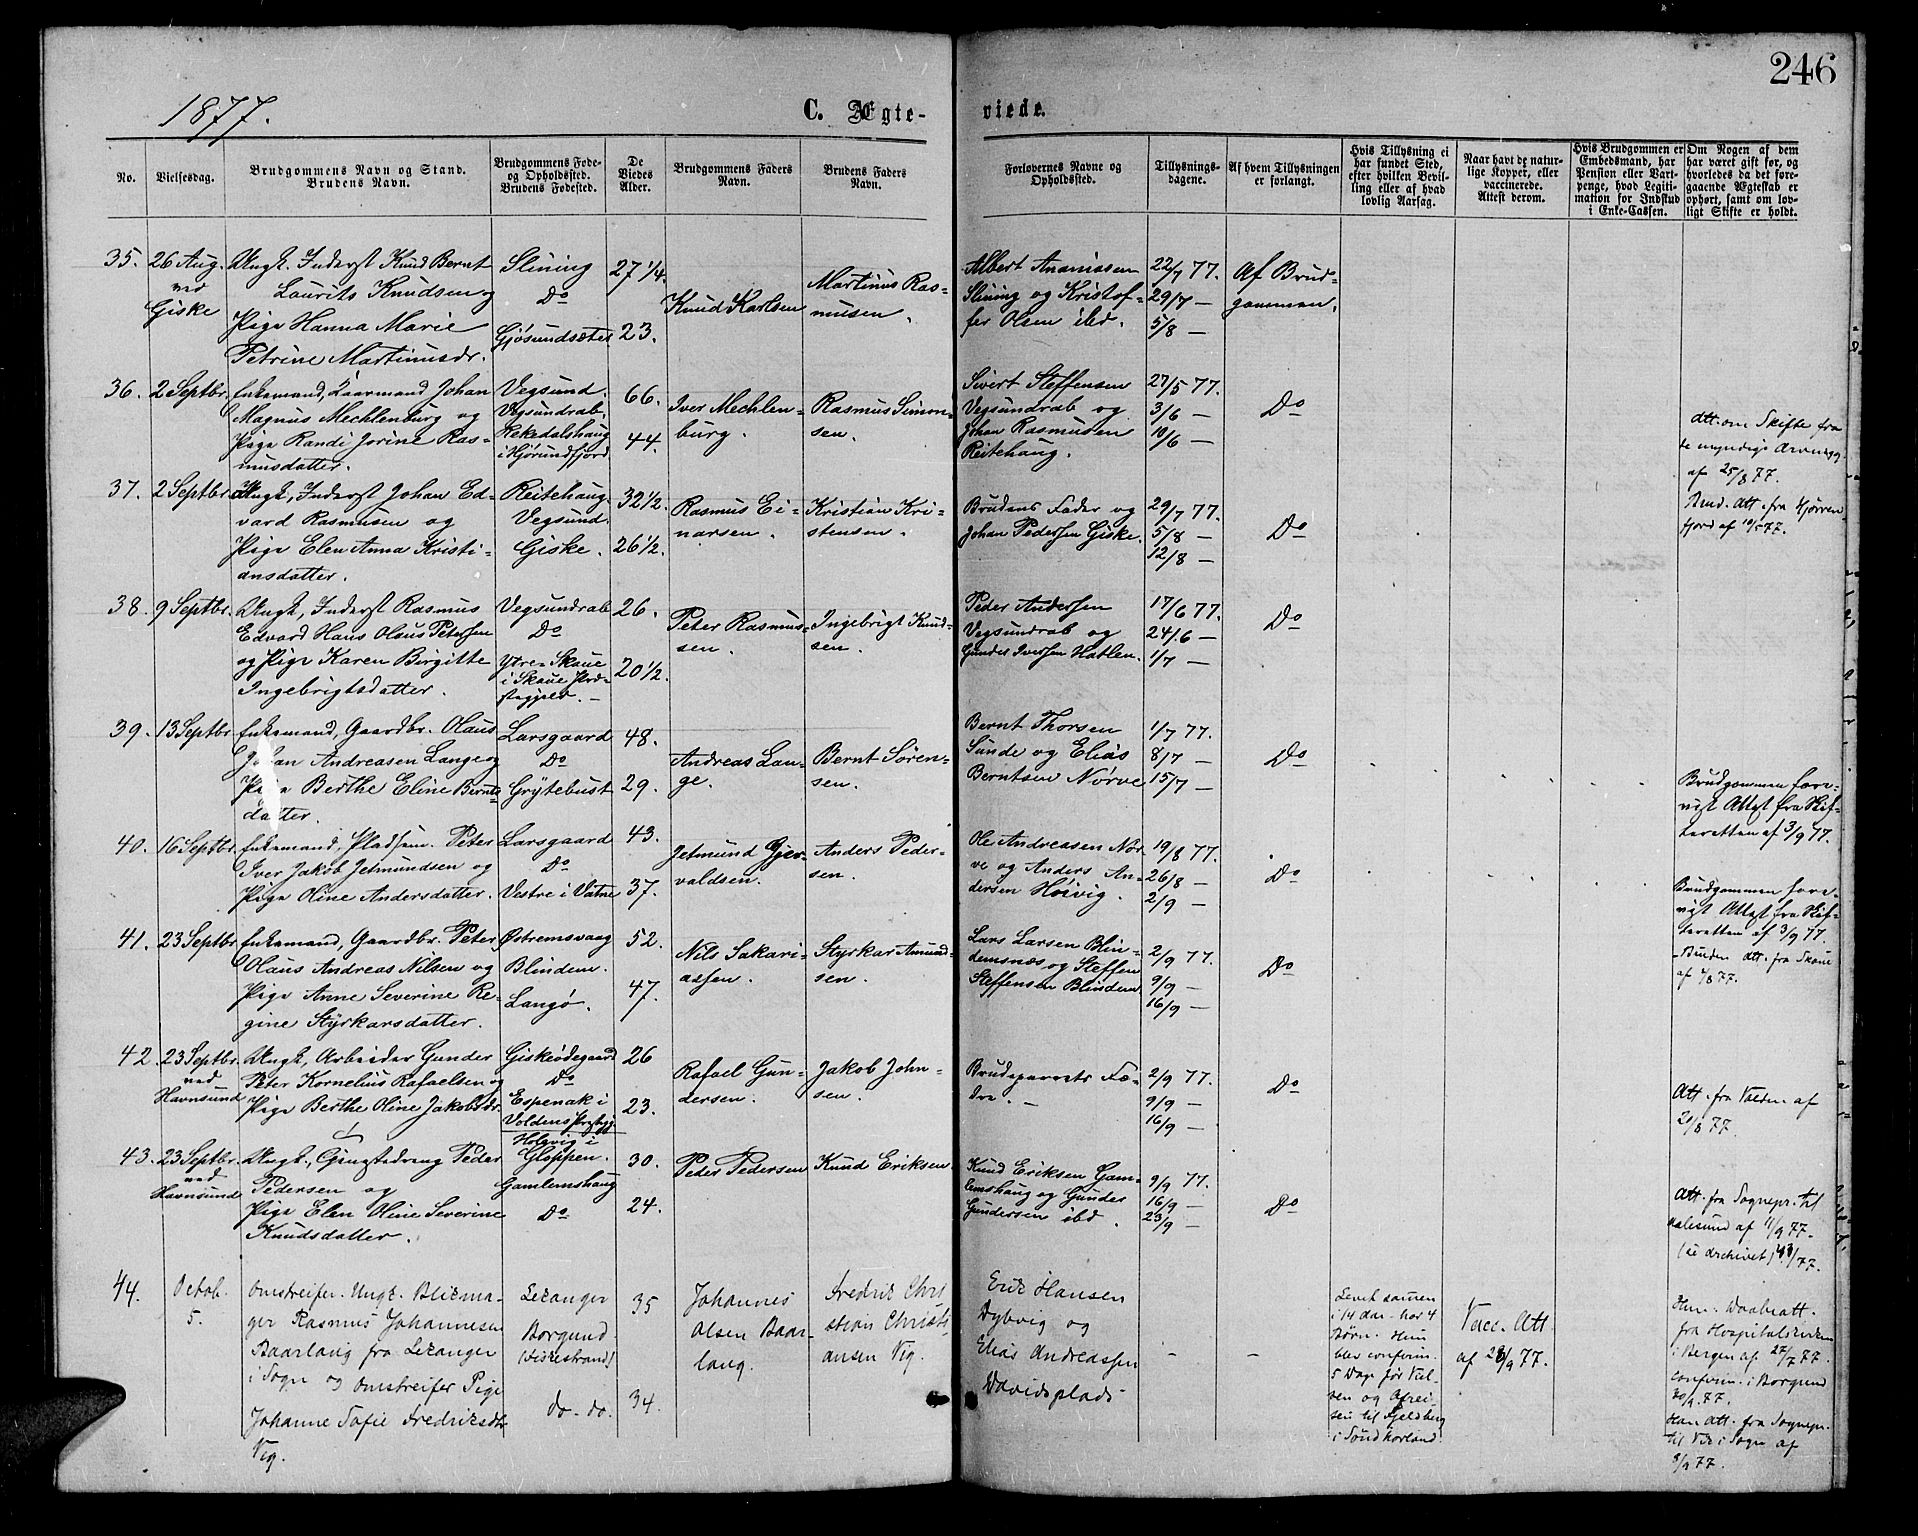 246
1877.
C. Ægte-
viede.
No.
Vielsesdag.
Brudgommens Navn og Stand.
Brudens Navn.
Brudgommens Føde-
og Opholdssted.
Brudens Fødested.
De
Viedes
Alder.
Brudgommens Faders
Navn.
Brudens Faders
Navn.
Forlovernes Navne og
Opholdssted.
Tillysnings-
dagene.
Af hvem Tillysningen
er forlangt.
Hvis Tillysning ei
har fundet Sted,
efter hvilken Bevil-
ling eller af hvad
lovlig Aarsag.
Naar havt de natur-
lige Kopper, eller
vaccinerede.
Attest derom.
Hvis Brudgommen er
Embedsmand, har
Pension eller Vart-
penge, hvad Legiti-
mation for Indskud
i Enke-Cassen.
Om Nogen af dem
har været gift før, og
hvorledes da det fore-
gaaende Ægteskab er
ophørt, samt om lov-
ligt Skifte er holdt.
35.
26 Aug.
ved
Giske
Ungk. Inderst Knud Bernt
Laurits Knudsen og
Pige Hanna Marie
Petrine Martinusdr.
Slining
Do
Gjøsundsæter
27 1/4.
23.
Knud Karlsen
Martinus Ras-
musen.
Albert Ananiassen
Slining og Kristof-
fer Olsen ibd.
22/7 77.
29/7 —
5/8 —
Af Brud-
gommen.
36.
2 Septbr.
Enkemand, Kaarmand Johan
Magnus Mechlenburg og
Pige Randi Jorine Ras-
musdatter.
Vegsund.
Vegsundrab.
Rekedalshaug
i Hjørundfjord
66.
44.
Iver Mechlen-
burg.
Rasmus Simon-
sen.
Sivert Steffensen
Vegsundrab og
Johan Rasmusen
Reitehaug.
27/5 77.
3/6 —
10/6 —
Do
Att. om Skifte fra
af 25/8 77.
Brud. Att. fra Hjøren-
fjord af 10/5 77.
37.
2 Septbr.
Ungk, Inderst Johan Ed-
vard Rasmusen og
Pige Elen Anna Kristi-
ansdatter.
Reitehaug.
Vegsund.
Giske.
32 1/2.
26 1/2.
Rasmus Ei-
narsen.
Kristian Kri-
stensen.
Brudens Fader og
Johan Pedersen Giske.
29/7 77.
5/8 —
12/8 —
Do
38.
9 Septbr.
Ungk, Inderst Rasmus
Edvard Hans Olaus Petersen
og Pige Karen Birgitte
Ingebrigtsdatter.
Vegsundrab
Do
Ytre-Skaue
i Skaue Præ-
stegjeld. —
26.
20 1/2.
Peter Rasmus-
sen.
Ingebrigt Knud-
sen.
Peder Andersen
Vegsundrab og
Gunder Iversen Hatlen.
17/6 77.
24/6 —
1/7 —
Do
39.
13 Septbr.
Enkemand, Gaardbr. Olaus
Johan Andreasen Lange og
Pige Berthe Eline Bernts-
datter.
Larsgaard
Do
Grytebust
48.
29.
Andreas Lan-
ge.
Bernt Søren-
sen.
Bernt Thorsen
Sunde og Elias
Berntsen Nørve
1/7 77.
8/7 —
15/7 —
Do
Brudgommen fore-
vist Attest fra Skif-
teretten af 3/9 77.
40.
16 Septbr.
Enkemand, Pladsem. Peter
Iver Jakob Jetmundsen og
Pige Oline Andersdatter.
Larsgaard
Do
Vestre i Vatne
43.
37.
Jetmund Gjer-
valdsen.
Anders Peder-
sen.
Ole Andreassen Nør-
ve og Anders An-
dersen Høivig.
19/8 77.
26/8 —
2/9 —
Do
Brudgommen fore-
vist Attest fra Skif-
teretten af 3/9 77.
41.
23 Septbr.
Enkemand, Gaardbr. Peter
Olaus Andreas Nilsen og
Pige Anne Severine Re-
gine Styrkarsdatter.
Østremsvaag
Blindem.
Langø.
52.
47.
Nils Sakari-
assen.
Styrkar Amund-
sen.
Lars Larsen Blin-
demsnæs og Steffen
Steffensen Blindem
2/9 77.
9/9 —
16/9 —
Do
Bruden Att. fra Skaue
af 4/8 77.
42.
23 Septbr.
ved
Havnsund
Ungk, Arbeider Gunder
Peter Kornelius Rafaelsen og
Pige Berthe Oline Jakobsdr.
Giskeødegaard
Do
Espenak i
Voldens Præstegj.
26
23.
Rafael Gun-
dersen.
Jakob John-
sen.
Brudeparrets Fæ-
dre. —
2/9 77.
9/9 —
16/9 —
Do
Att. fra Volden af
20/8 77.
43.
23 Septbr.
ved
Havnsund
Ungk., Tjenestedreng Peder
Pedersen og
Pige Elen Oline Severine
Knudsdatter.
Holevig i
Gloppen.
Gamlemshaug
Do
30.
24.
Peder Pedersen
Knud Eriksen.
Knud Eriksen Gam-
lemshaug og Gunder
Gundersen ibd.
9/9 77.
16/9 —
23/9 —
Do
Att. fra Sognepr. til
Aalesund af 11/9 77.
44.
Octob.
5.
Omstreifer. Ungk. Blikma-
ger Rasmus Johannesen
Baarlaug fra Lekanger
i Sogn og Omstreifer Pige
Johanne Sofie Fredriksdtr
Vig.
Lekanger
Borgund
(Fiskestrand)
do. do.
35
34.
Johannes
Olsen Baar-
laug.
Fredrik Chri-
stian Christi-
ansen Vig.
Erik Hansen
Dybvig og
Elias Andreassen
Davidsplads
Levet sammen
i 14 Aar. har 4
Børn. Hun
blev confirm.
5 Dage før Viel-
sen og Afrei-
sen til Fjeldberg
i Søndhorland.
Vacc. Att.
af 28/9 77.
Hun: Daabsatt.
fra Hospitalskirken
i Bergen af 27/7 77.
confirm. i Borgund
30/9 77.
Han Att. fra Sognepr.
til Vik i Sogn af
8/9 77.